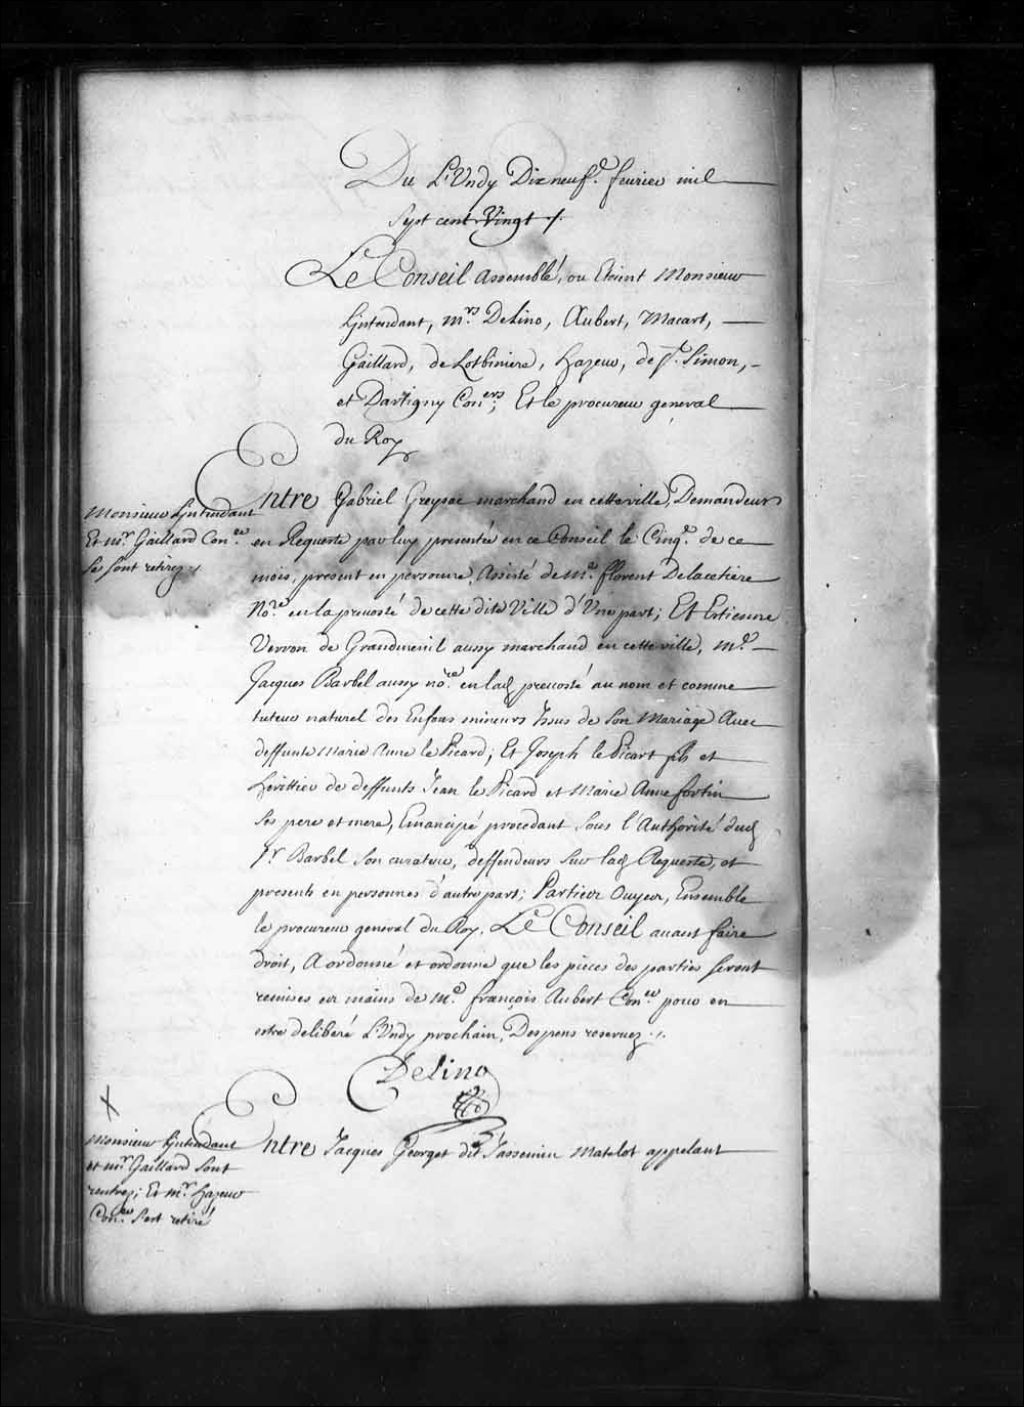 Du L'Undy Dixneuf.e feurier mil
sept cent Vingt ./.
Le Conseil assemblé, ou Etoient Monsieur
L'jntendant, m.rs Delino, Aubert, Macart,
Gaillard, de Lotbiniere, hazeur, de S.t Simon,
et Dartigny Con.ers, Et le procureur general
du Roy
Entre Gabriel Greysac marchand en cette ville, Demandeur
en Requeste par luy presentée en ce Conseil le Cinq.e de ce
mois, present en personne, Assisté de m.e florent Delacetiere
No.re en la preuosté de cette dite Ville d'Vne part; Et Estienne
Verron de Grandmenil aussy marchand en cette ville, m.e
Jacques Barbel aussy no.re en lad preuosté au nom et comme
tuteur naturel des Enfans mineurs Issus de son Mariage Auec
deffunte Marie Anne le Picard; Et Joseph le Picart fils et
herittier de deffunts Jean le Picard et Marie Anne fortin
ses pere et mere, Emancipé procedant sous l'Authorité dud
S.r Barbel son curateur, deffendeurs sur lad Requeste, et
presents en personnes d'autre part; Parties Ouyes, Ensemble
le procureur general du Roy. Le Conseil auant faire
droit, A ordonné et ordonne que les pieces des parties seront
remises es mains de M.e françois Aubert Con.er pour en
estre deliberé L'Undy prochain, Despens reseruez ./.
Delino
Monsieur L'jntendant
Et m.r Gaillard Con.er
se sont retirez ./.
Entre Jacques Georget dit Jassemin Matelot appelant
X
Monsieur L'jntendant
et m.r Gaillard sont
rentrez; Et m.r hazeur
Con.er s'est retiré